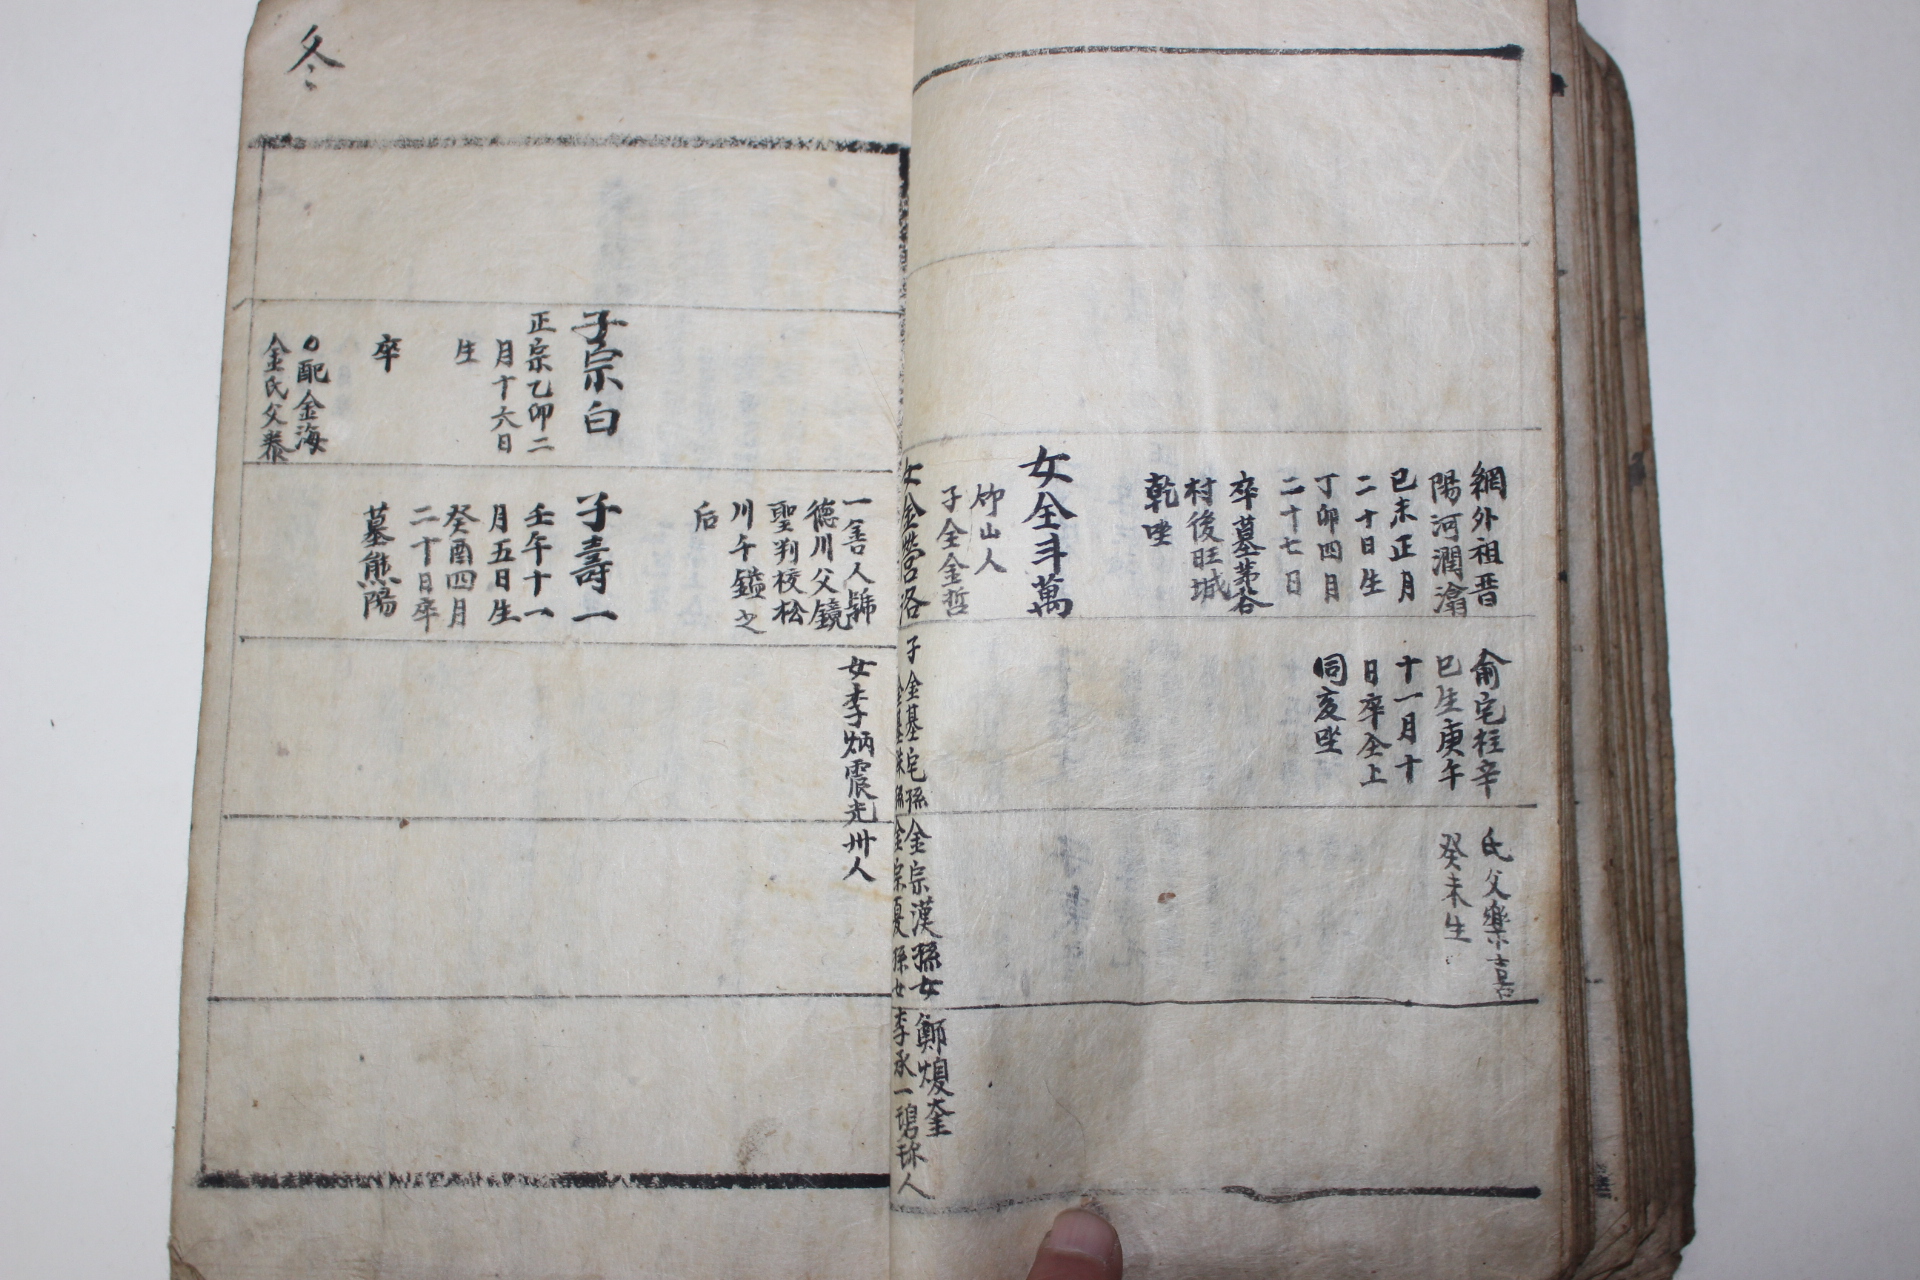 網外祖晋
陽河潤瀹
己未正月
二十日生
丁卯四月
二十七日
卒墓茅谷
村後旺城
乾坐
女全斗萬
竹山人
子全金哲
兪宅柱辛
巳生庚午
十一月十
日卒仝上
同亥坐
氏父樂喜
癸未生
女金
洛
子金基宅孫金宗漢孫女鄭煥奎
孫金宗
孫女李承一碧珍人
一善人號
德川父鏡
聖判校松
川午鎰之
后
女李炳震光州人
子宗白
正宗乙卯二
月十六日
生
卒
配金海
金氏父
子壽一
壬午十一
月五日生
癸酉四月
二十日卒
墓熊陽
冬